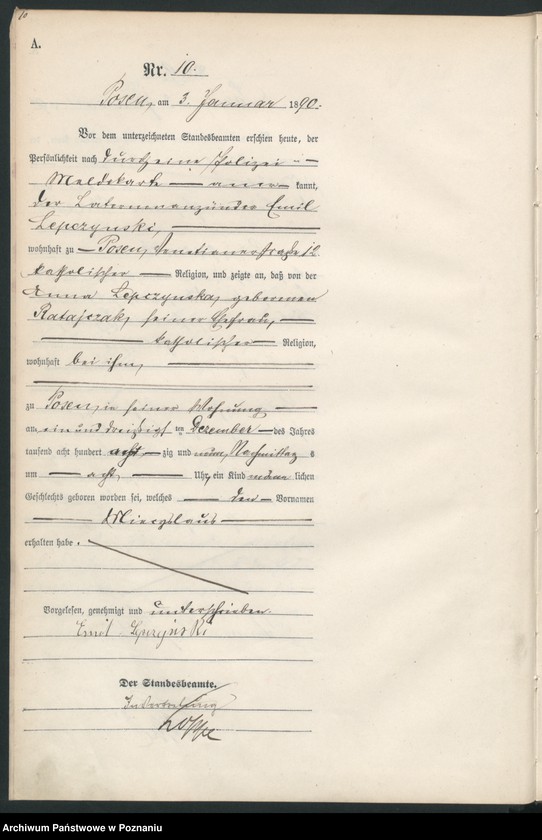 10
A.
Nr. 10.
Posen, am 3. Januar 1890.
Vor dem unterzeichneten Standesbeamten erschien heute, der
Persönlichkeit nach durch eine Polizei-
Meldekarte — aner — kannt,
der Laternenanzünder Emil
Lepczynski,
wohnhaft zu Posen, Venetianerstraße 12
katholischer Religion, und zeigte an, daß von der
Anna Lepczynska, geborenen
Ratajczak, seiner Ehefrau,
katholischer Religion,
wohnhaft bei ihm,
zu Posen, in seiner Wohnung
am ein und dreißigsten Dezember des Jahres
tausend acht hundert acht zig und neun, Nachmittags
um acht Uhr, ein Kind männ lichen
Geschlechts geboren worden sei, welches den Vornamen
erhalten habe.
Vorgelesen, genehmigt und unterschrieben.
Emil Lepczynski
Der Standesbeamte.
In Vertretung
Archiwum Państwowe w Poznaniu